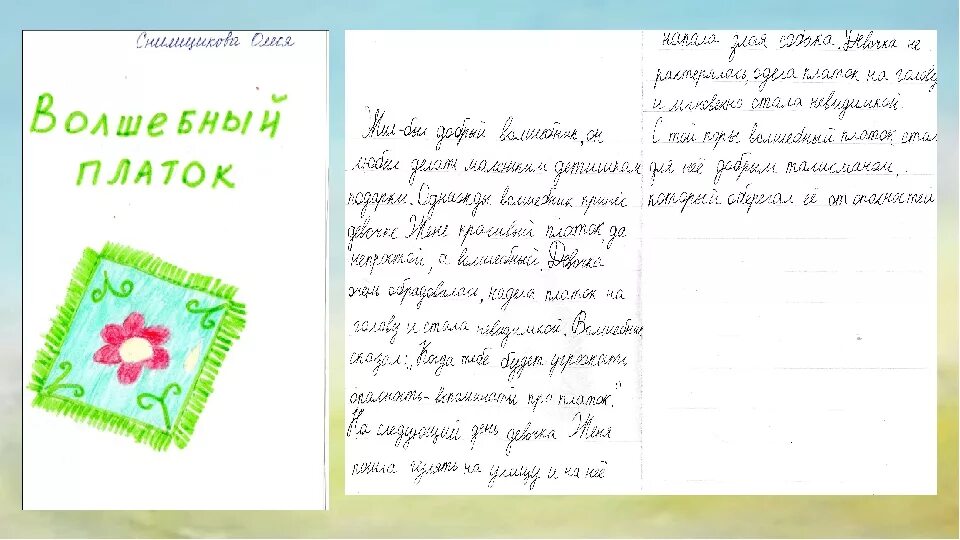 Снилщикова Олеся
ВОЛШЕБНЫЙ
ПЛАТОК
Жил-был добрый волшебник, он
любил делать маленьким детишкам
подарки. Однажды волшебник принёс
девочке Жене красивый платок, да
непростой, а волшебный. Девочка
очень обрадовалась, надела платок на
голову и стала невидимкой. Волшебник
сказал: „Когда тебе будет угрожать
опасность - вспомни ты про платок."
На следующий день девочка Женя
пошла гулять на улицу и на неё
напала злая собака. Девочка не
растерялась, одела платок на голову
и мгновенно стала невидимкой.
С той поры волшебный платок стал
для неё добрым талисманом,
который оберегал её от опасностей